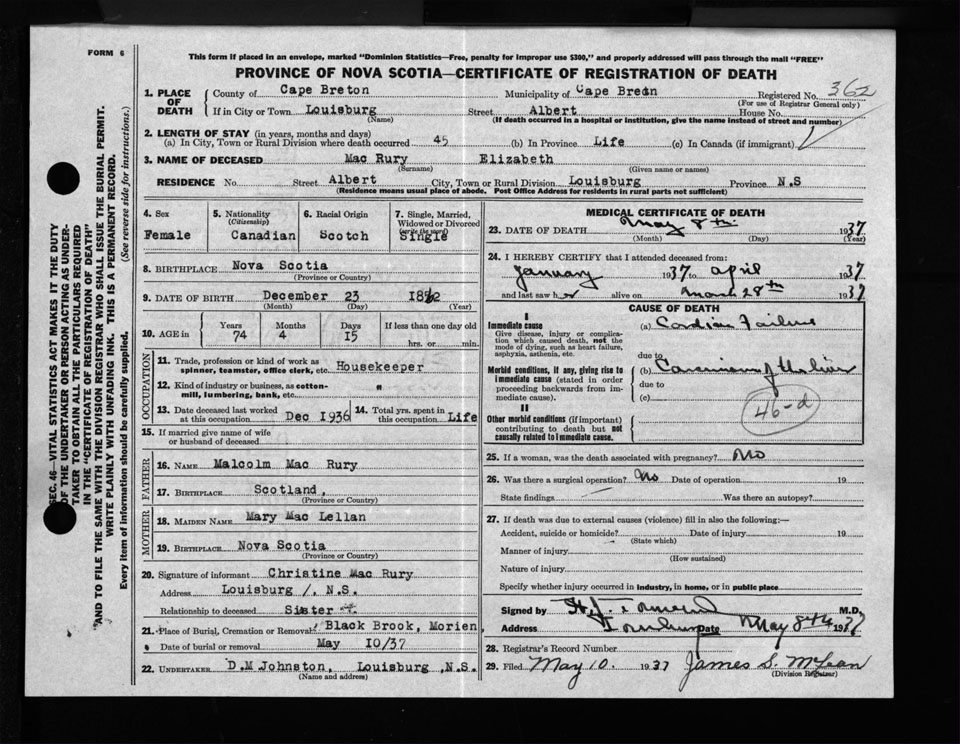 FORM 6
This form if placed in an envelope, marked "Dominion Statistics—Free, penalty for improper use $300," and properly addressed will pass through the mail "FREE"
PROVINCE OF NOVA SCOTIA—CERTIFICATE OF REGISTRATION OF DEATH
1. PLACE OF DEATH County of Cape Breton Municipality of Cape Breton Registered No. 362
(For use of Registrar General only)
If in City or Town Louisburg Street Albert House No.
(Name) (If death occurred in a hospital or institution, give the name instead of street and number)
2. LENGTH OF STAY (in years, months and days)
(a) In City, Town or Rural Division where death occurred 45 (b) In Province Life (c) In Canada (if immigrant)
3. NAME OF DECEASED Mac Rury Elizabeth
(Surname) (Given name or names)
RESIDENCE No. Street Albert City, Town or Rural Division Louisburg Province N.S
(Residence means usual place of abode. Post Office Address for residents in rural parts not sufficient)
4. Sex Female
5. Nationality (Citizenship) Canadian
6. Racial Origin Scotch
7. Single, Married, Widowed or Divorced (write the word) Single
8. BIRTHPLACE Nova Scotia
(Province or Country)
9. DATE OF BIRTH December 23
(Month) (Day) (Year)
10. AGE in Years 74 Months 4 Days 15 If less than one day old hrs. or min.
OCCUPATION
11. Trade, profession or kind of work as spinner, teamster, office clerk, etc. Housekeeper
12. Kind of industry or business, as cotton-mill, lumbering, bank, etc. "
13. Date deceased last worked at this occupation Dec 1936
14. Total yrs. spent in this occupation Life
15. If married give name of wife or husband of deceased
FATHER
16. NAME Malcolm Mac Rury
17. BIRTHPLACE Scotland,
(Province or Country)
MOTHER
18. MAIDEN NAME Mary Mac Lellan
19. BIRTHPLACE Nova Scotia
(Province or Country)
20. Signature of informant Christine Mac Rury
Address Louisburg /. N.S.
Relationship to deceased Sister
21. Place of Burial, Cremation or Removal Black Brook, Morien,
Date of burial or removal May 10/37
22. UNDERTAKER D.M Johnston, Louisburg ,N.S.
(Name and address)
MEDICAL CERTIFICATE OF DEATH
23. DATE OF DEATH May 8th 1937
(Month) (Day) (Year)
24. I HEREBY CERTIFY that I attended deceased from:
January 1937 to April 1937
and last saw her alive on March 28th 1937
CAUSE OF DEATH
I
Immediate cause
Give disease, injury or complication which caused death, not the mode of dying, such as heart failure, asphyxia, asthenia, etc.
(a) Cardiac Failure
due to
Morbid conditions, if any, giving rise to immediate cause (stated in order proceeding backwards from immediate cause).
(b) Carcinoma of the liver
due to
(c)
46-d
II
Other morbid conditions (if important) contributing to death but not causally related to immediate cause.
25. If a woman, was the death associated with pregnancy? No
26. Was there a surgical operation? No Date of operation 19
State findings Was there an autopsy?
27. If death was due to external causes (violence) fill in also the following:—
Accident, suicide or homicide? Date of injury 19
(State which)
Manner of injury
(How sustained)
Nature of injury
Specify whether injury occurred in industry, in home, or in public place
Signed by M.D.
Address Louisburg Date May 8th 1937
28. Registrar's Record Number
29. Filed May 10 1937 James S. McLean
(Division Registrar)
SEC. 46—VITAL STATISTICS ACT MAKES IT THE DUTY
OF THE UNDERTAKER OR PERSON ACTING AS UNDER-
TAKER TO OBTAIN ALL THE PARTICULARS REQUIRED
IN THE "CERTIFICATE OF REGISTRATION OF DEATH"
"AND TO FILE THE SAME WITH THE DIVISION REGISTRAR WHO SHALL ISSUE THE BURIAL PERMIT.
WRITE PLAINLY WITH UNFADING INK. THIS IS A PERMANENT RECORD.
Every item of information should be carefully supplied. (See reverse side for instructions.)